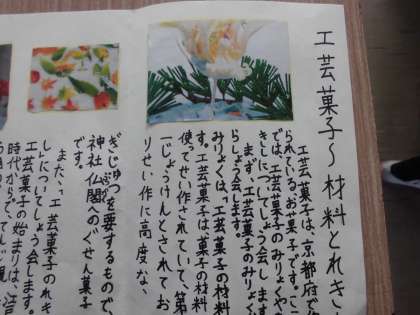 工芸菓子〜材料とれきし
工芸菓子は、京都府で作
られているお菓子です。こ
では、工芸菓子のみりょくや
きしについてしょう会します
まず、工芸菓子のみりょく
らしょう会します。
みりょくは、工芸菓子の材料
す。工芸菓子は菓子の材料
使ってせい作されていて、第
一じょうけんとされてお
りせい作に高度な、
ぎじゅつを要するもので、
神社仏閣へのぐぜん菓子
です。
また、工芸菓子のれき
しについてしょう会します。
工芸菓子の始まりは、江戸
時代からで、